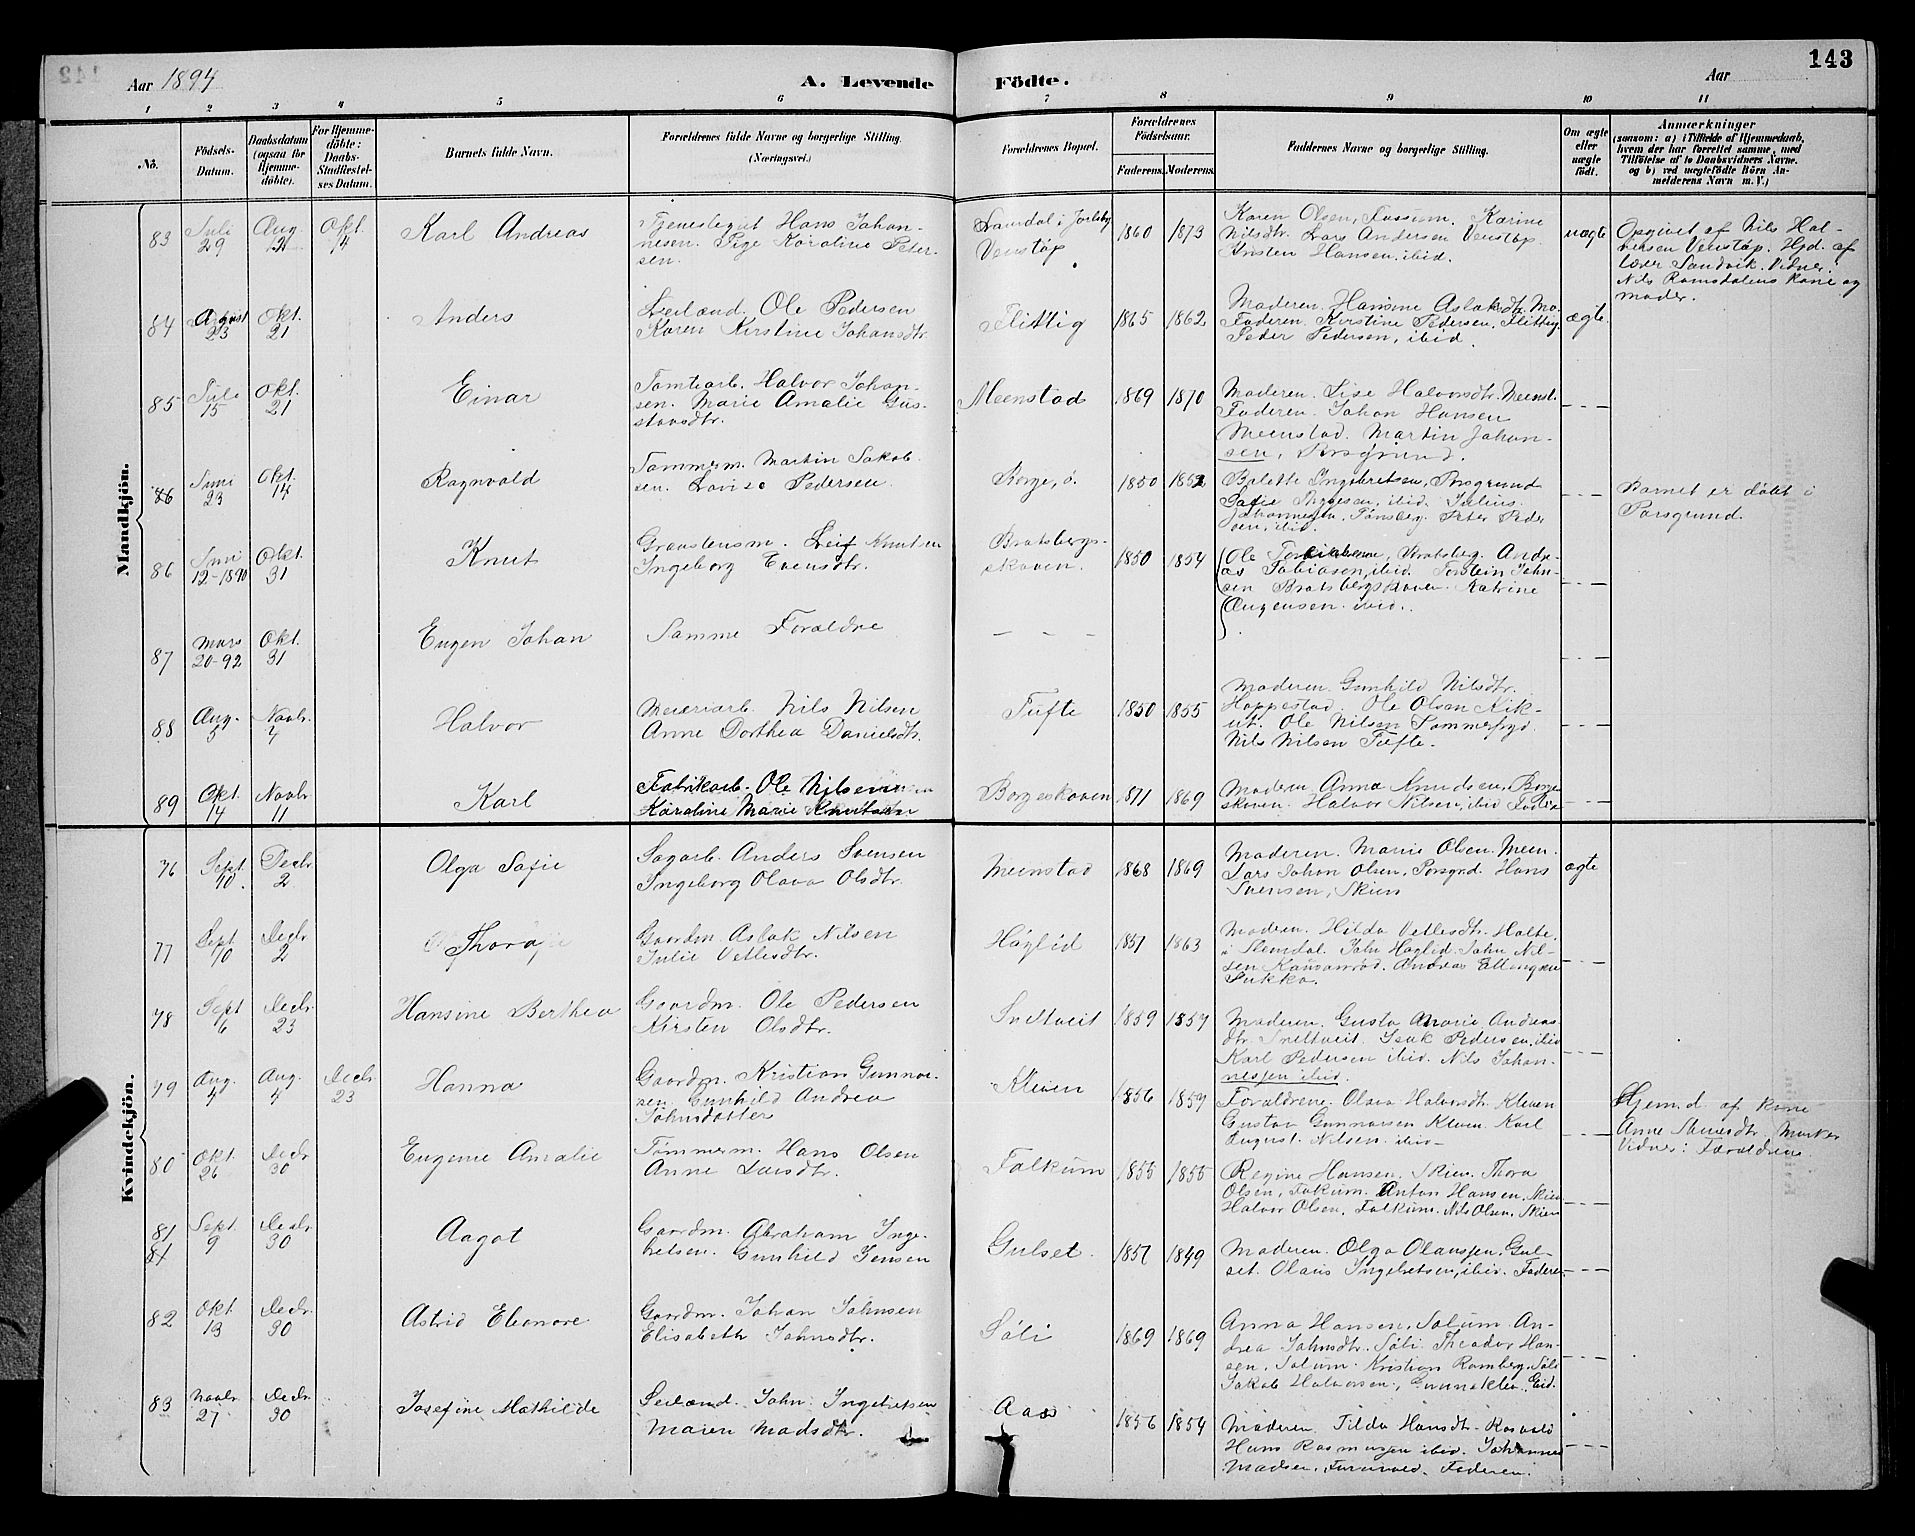 Aar 1894
A. Levende
Födte.
Aar
143
1 2 3 4 5 6 7 8 9 10 11
No.
Födsels-
Datum.
Daabsdatum
(ogsaa for
Hjemme-
döbte).
For Hjemme-
döbte:
Daabs-
Stadfæstel-
ses Datum.
Barnets fulde Navn.
Forældrenes fulde Navne og borgerlige Stilling.
(Næringsvei.)
Forældrenes Bopæl.
Forældrenes
Födselsaar.
Faderens. Moderens.
Faddernes Navne og borgerlige Stilling.
Om ægte
eller
uægte
födt.
Anmærkninger
(saasom: a) i Tilfælde af Hjemmedaab,
hvem der har forrettet samme, med
Tilföielse af to Daabsvidners Navne.
og b) ved uægtefödte Börn An-
melderens Navn m. V.)
Mandkjön.
83
Juli
29
Aug.
21
Okt.
14
Karl Andreas
Tjenestegut Hans Johan-
nesen. Pige Karoline Peder-
sen.
Venstøp
1860 1873
Karen Olsen, Fossum. Karine
Nilsdtr. Lars Andersen Venstøp.
Kristen Hansen, ibid.
uægte
Opgivet af Nils Hal-
vorsen Venstøp. Hjd. af
Lærer Sandvik. Vidner:
Nils Ramsdalens kone og
moder.
84
August
23
Okt.
21
Anders
Leilænd. Ole Pedersen
Karen Kirstine Johansdtr.
Flittig
1865 1862
Moderen. Hansine Aslaksdtr. Mo.
Faderen. Kirstine Pedersen, Flittig
Peder Pedersen, ibid.
ægte
85
Juli
15
Okt.
21
Einar
Tomtearb. Halvor Johan-
sen. Marie Amalie Gus-
stavsdtr.
Meenstad
1869 1870
Moderen. Lise Halvorsdtr. Meenst.
Faderen. Johan Hansen
Meenstad. Martin Johan-
sen, Porsgrund.
86
Juni
23
Okt.
14
Ragnvald
Tømmerm. Martin Jakob-
sen. Lovise Pedersen.
Borge, ø.
1850 1852
Bolette Ingebretsen, Porsgrund
ibid. Julius
Johannesen, Tønsberg. Peter Peder
sen, ibid.
Barnet er døbt i
Porsgrund.
86
Juni
12-1890
Okt.
31
Knut
Graastensm. Leif Knutsen
Ingeborg Evensdtr.
Bratsbergs-
skoven.
1850 1854
Ole Bratsberg. Andre-
as Tobiasen, ibid. Torstein John-
sen Bratsbergskoven. Katrine
Jørgensen. ibid.
87
Mars
20-92
Okt.
31
Eugen Johan
Samme Forældre
88
Aug.
5
Novbr.
4
Halvor
Meieriarb. Nils Nilsen
Anne Dorthea Danielsdtr.
Tufte
1850 1855
Moderen. Gunhild Nilsdtr.
Hoppestad. Ole Olsen Kik-
ut. Ole Nilsen Sommerfryd.
Nils Nilsen Tufte.
89
Okt.
14
Novbr.
11
Karl
Fabrikarb. Ole Nilsen
Karoline Marie Knutsen
Borgeskoven
1871 1869
Moderen Anna Knudsen, Borge-
skoven. Halvor Nilsen, ibid
Kvindekjön.
76
Sept.
10.
Decbr.
2
Olga Sofie
Sagarb. Anders Svensen
Ingeborg Olava Olsdtr.
Meenstad
1868 1869
Moderen. Marie Olsen. Meen.
Lars Johan Olsen, Porsgrd. Hans
Sørensen, Skien
ægte
77
Sept.
10
Decbr.
2
Thora
Gaardm. Aslak Nilsen
Julie Vetlesdtr.
Høglid
1851 1863
Moderen. Hilda Vetlesdtr. Holte
i Slemdal. John Høglid. John Nil-
sen Andreas Ellingsen
78
Sept
6
Decbr.
23
Hansine Berthea
Gaardm. Ole Pedersen
Kirsten Olsdtr.
Sneltveit
1859 1859
Moderen. Gusta Marie Andreas-
dtr. Sneltveit. Isak Pedersen, ibid
Karl Pedersen ibid. Nils Johan-
nesjen ibid.
79
Aug.
4
Aug.
4
Decbr.
23
Hanna
Gaardm. Kristian Gunnar-
sen. Gunhild Andrea
Johnsdatter
Kleven
1856 1859
Forældrene. Olava Halvorsdtr. Kleven
Gustav Gunnarsen Kleven. Karl
August Nilsen. ibid.
Hjem.d. af Kone
Anne
Vidner: Forældrene.
80
Okt.
26
Decbr
30
Eugenie Amalie
Tømmerm. Hans Olsen
Anne Larsdtr.
Falkum
1855 1855
Regine Hansen, Skien. Thora
Olsen, Falkum. Anton Hansen, Skien
Halvor Olsen, Falkum. Nils Olsen, Skien
81
81
Sept.
9
Decbr
30
Aagot
Gaardm. Abraham Inge-
bretsen. Gunhild Jensen
Gulset.
1857 1849
Moderen. Olga Olaussen, Gul-
set. Olaus Ingebretsen, ibid. Faderen.
82
Okt.
13
Decbr.
30
Astrid Eleonore
Gaardm. Johan Johnsen
Elisabeth Johnsdtr.
Søli
1869 1869
Anna Hansen, Solum. An-
drea Johnsdtr. Søli. Theodor Han-
sen, Solum. Kristian Romberg, Søli
Jakob Halvorsen, Gunneklev, Eid.
83
Novbr
27
Decbr
30
Josefine Mathilde
Leilænd. John Ingebretsen
Maren Madsdtr.
Aas
1856 1854
Moderen. Tilda Hansdtr.
Hans Rasmussen ibid. Johannes
Madsen, Faderen.